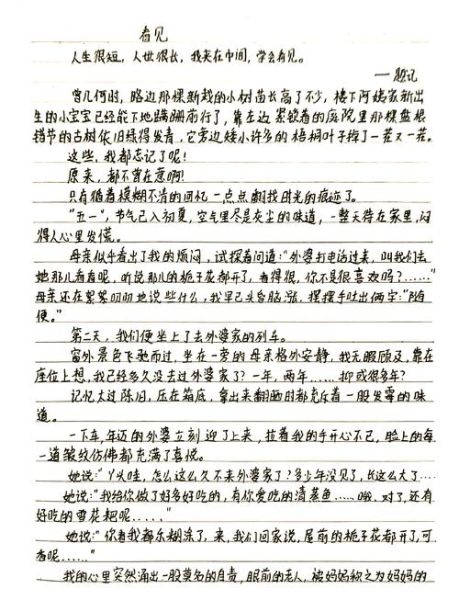 看见
人生很短，人世很长，我夹在中间，学会看见。
——题记
曾几何时，路边那棵新栽的小树苗长高了不少，楼下阿姨家新出
生的小宝宝已经能下地蹒跚前行了，靠在边 紧锁着的庭院里那棵盘根
错节的古树依旧绿得发青，它旁边矮小许多的梧桐叶子掉了一茬又一茬。
这些，我都忘记了呢！
原来，都不曾在意啊！
只有循着模糊不清的回忆一点点翻找时光的痕迹了。
"五一"，节气已入初夏，空气里尽是灰尘的味道，一整天待在家里，闷
得人心里发慌。
母亲似乎看出了我的烦闷，试探着问道："外婆打电话过来，叫我们去
她那儿看看呢，听说那儿的栀子花都开了，香得很，你不是很喜欢吗？……"
母亲还在絮絮叨叨地说些什么，我早已头昏脑涨，摆摆手吐出俩字："随
便。"
第二天，我们便坐上了去外婆家的列车。
窗外景色飞驰而过，坐在一旁的母亲格外安静，我无暇顾及，靠在
座位上想，我已经多久没去过外婆家了？一年，两年……抑或很多年？
记忆太过陈旧，压在箱底，拿出来翻晒时都充斥着一股发霉的味
道。
一下车，年迈的外婆立刻迎了上来，拉着我的手开心不已，脸上的每
一道皱纹仿佛都充满了喜悦。
她说："丫头哇，怎么这么久不来外婆家了？多少年没见了，长这么大了……
她说："我给你做了好多好吃的，有你爱吃的清蒸鱼……哦，对了，还有
好吃的雪花粑呢……"
她说："你看我都乐糊涂了，来，我们回家说，屋前的栀子花都开了，可
香呢……"
我的心里突然涌出一股莫名的自责，眼前的老人，被妈妈称之为妈妈的